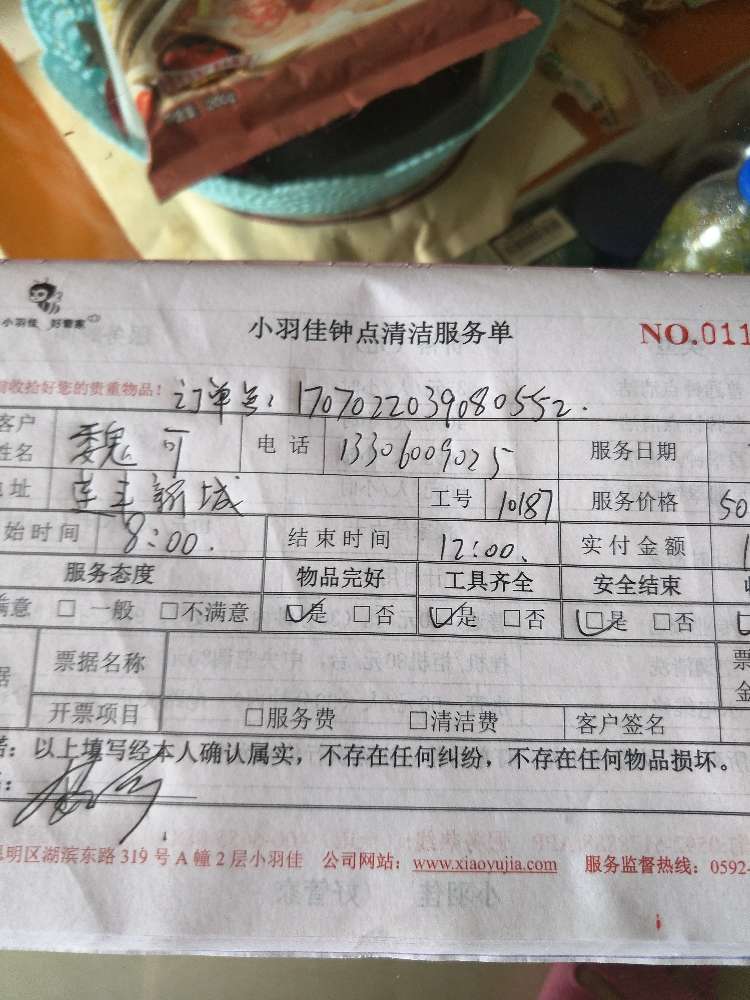 200g
小羽佳 好管家
小羽佳钟点清洁服务单
NO.011
收拾好您的贵重物品！ 订单号：1707022039080552.
客户姓名 魏可 电话 13306009025 服务日期
地址 莲丰新城 工号 10187 服务价格 50
始时间 8:00. 结束时间 12:00. 实付金额 1
服务态度 物品完好 工具齐全 安全结束
满意 □ 一般 □不满意 □是 □否 □是 □否 □是 □否
据 票据名称 票
金
开票项目 □服务费 □清洁费 客户签名
：以上填写经本人确认属实，不存在任何纠纷，不存在任何物品损坏。
明区湖滨东路 319 号 A 幢 2 层小羽佳 公司网站：www.xiaoyujia.com 服务监督热线：0592-